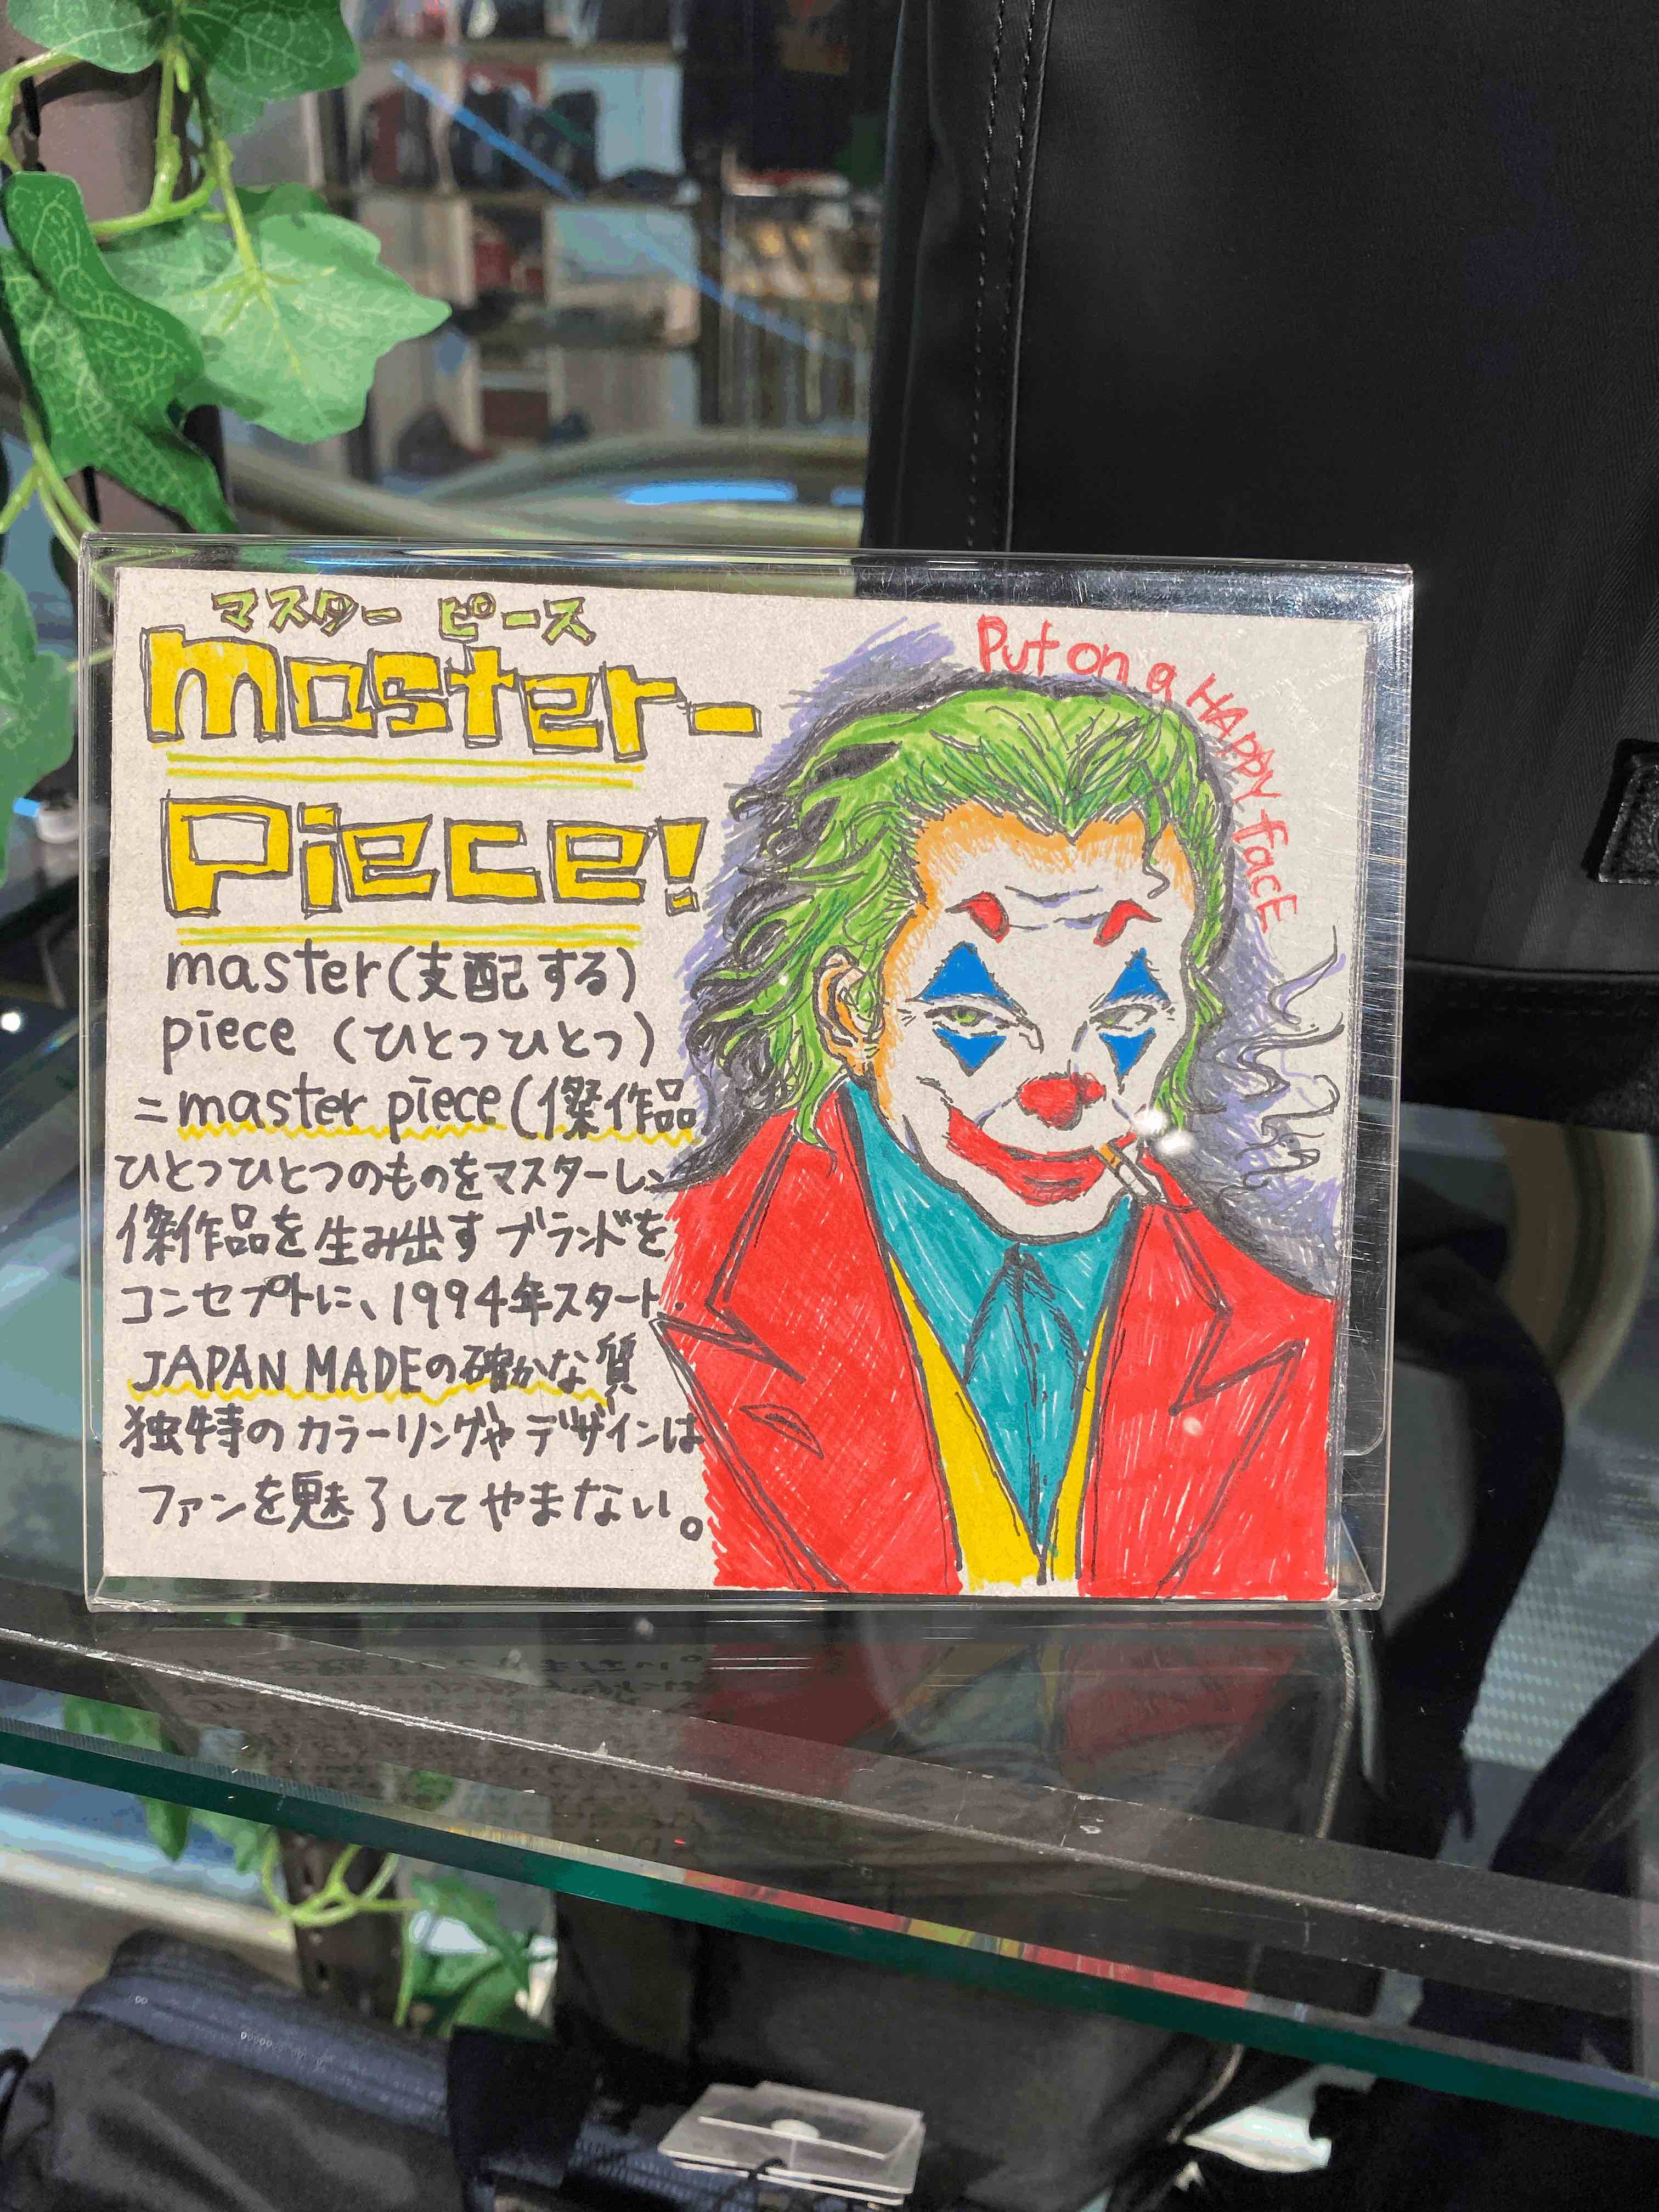 マスター ピース
master-
piece!
master(支配する)
piece (ひとつひとつ)
=master piece(傑作品)
ひとつひとつのものをマスターし、
傑作品を生み出すブランドを
コンセプトに、1994年スタート.
JAPAN MADEの確かな質
独特のカラーリングやデザインは
ファンを魅了してやまない。
Put on a HAPPY facE